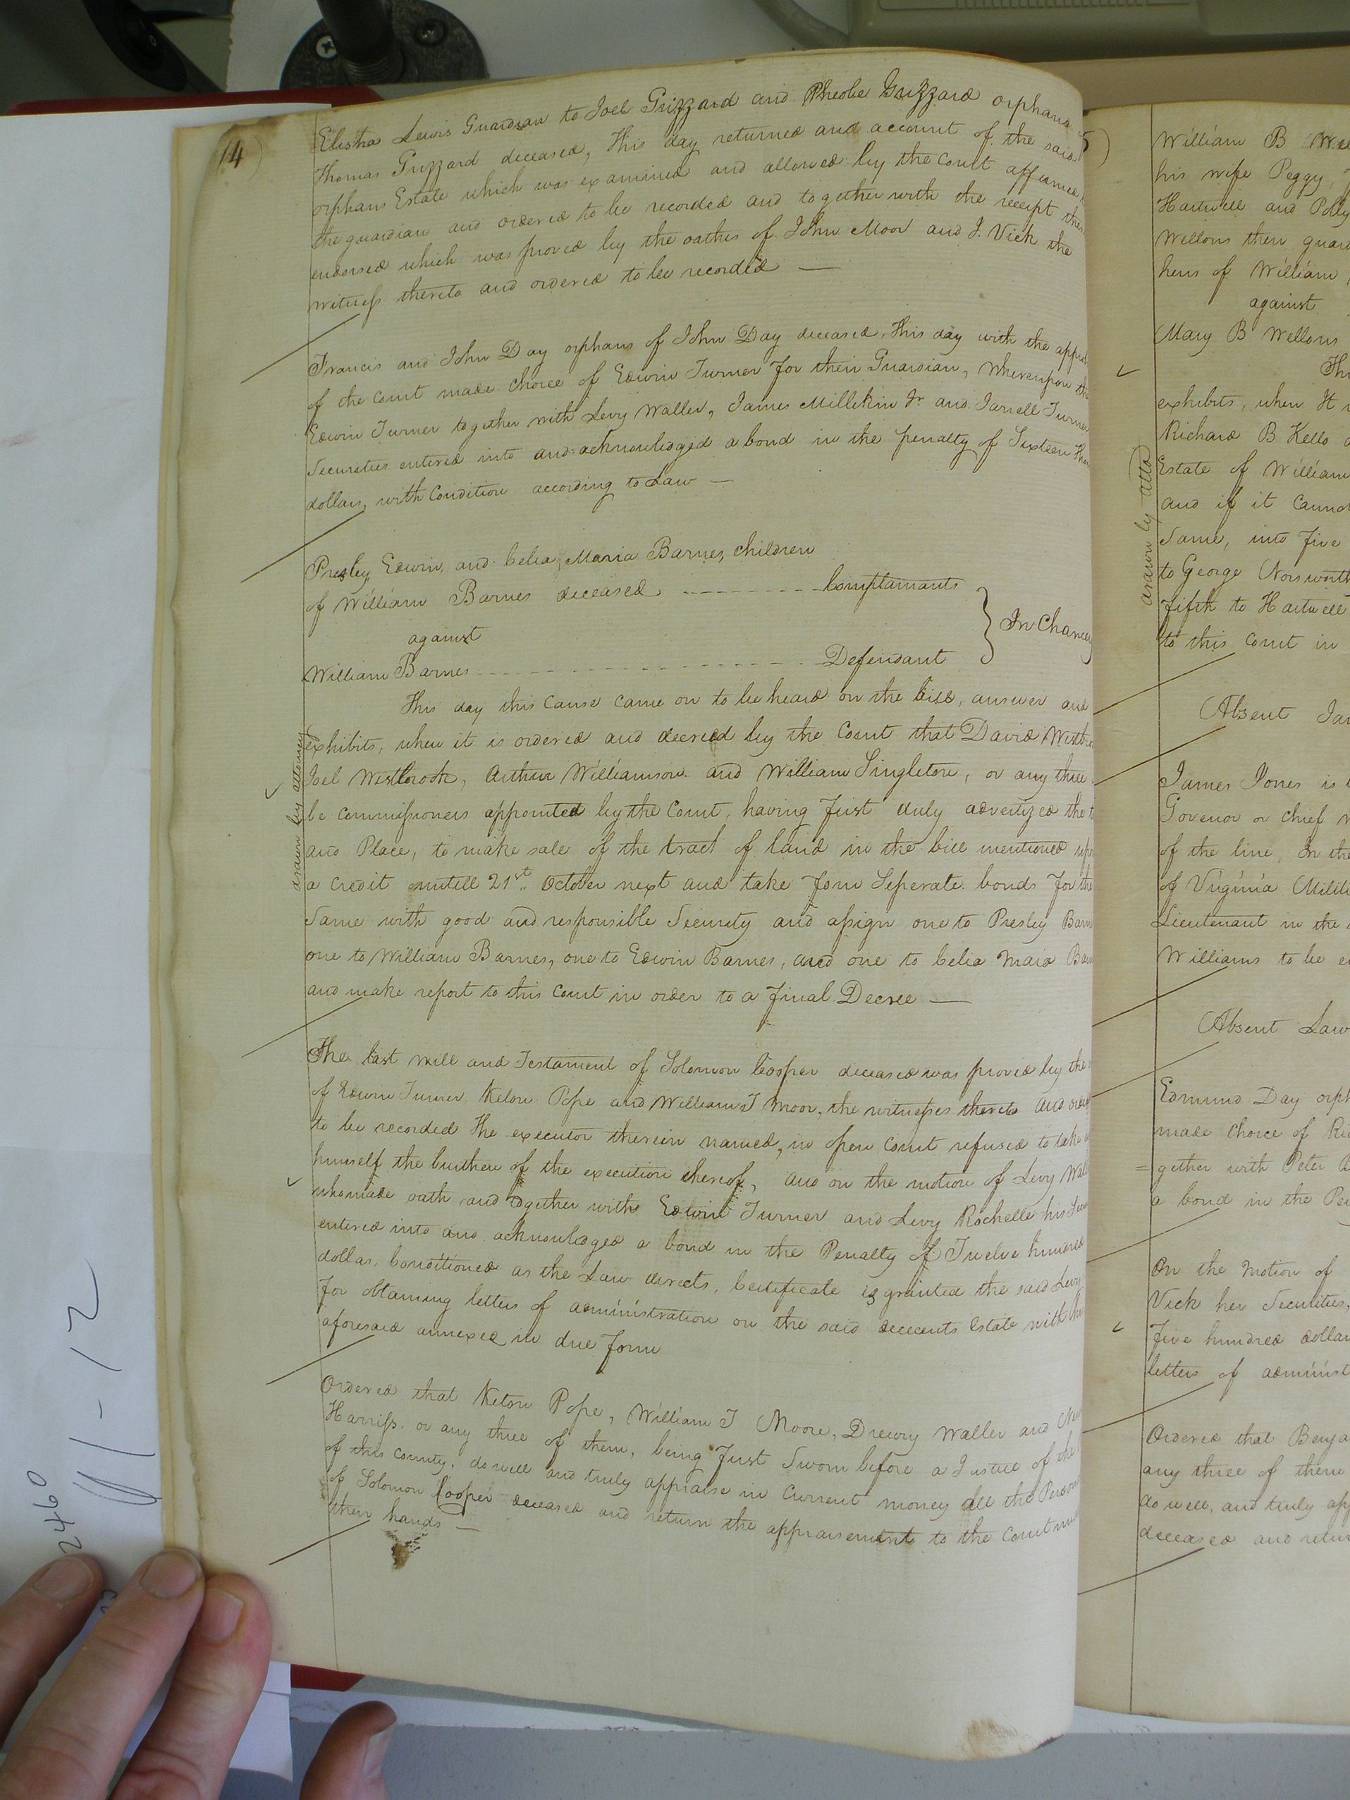 14)
Elisha Lewis Guardian to Joel Grizzard and Pheobe Grizzard orphans
Thomas Grizzard deceased, This day returned and account of the said
orphans Estate which was examined and allowed by the Court affirmed
the guardian and ordered to be recorded and together with the receipt
endorsed which was proved by the oaths of John Moor and J. Vick the
witness thereto and ordered to be recorded —
Francis and John Day orphans of John Day deceased, This day with the
of the Court made choice of Edwin Turner for their Guardian, Whereupon the
Edwin Turner together with Levy Waller, James Millikin Jr and Jarrell Turner
Securities entered into and acknowledged a bond in the penalty of Sixteen
dollars, with Condition according to Law —
Presley, Edwin, and Celia Maria Barnes, children
of William Barnes deceased - - - - - - - - Complainants
against
In Chancery
William Barnes - - - - - - - - - - - - - - - - Defendant
This day this Cause came on to be heard on the bill, answer and
exhibits, when it is ordered and decreed by the Court that David
Joel Westbrook, Arthur Williamson and William Singleton, or any three
be commissioners appointed by the Court, having first duly advertized the
and Place, to make sale of the tract of land in the bill mentioned
a credit untill 21st October next and take four Seperate bonds for the
same with good and responsible Security and assign one to Presley
one to William Barnes, one to Edwin Barnes, and one to Celia Maria
and make report to this Court in order to a final Decree —
drawn by attorney
The last will and Testament of Solomon Cooper deceased was proved by the
of Edwin Turner Keton Pope and William T Moor, the witnesses thereto and
to be recorded The executor therein named, in open Court refused to take
himself the burthen of the execution thereof, and on the motion of Levy
who made oath and together with Edwin Turner and Levy Rochelle his
entered into and acknowledged a bond in the Penalty of Twelve hundred
dollars, Conditioned as the Law directs, Certificate is granted the said Levy
for obtaining letters of administration on the said decedents Estate with
aforesaid annexed in due form
Ordered that Keton Pope, William T Moore, Drewry Waller and
Harriss or any three of them, being first Sworn before a Justice of the
of this County, do well and truly appraise in Current money all the
of Solomon Cooper deceased and return the appraisements to the Court
their hands —
William B
his wife Peggy,
Hartwell and Polly
Wellons their
heirs of William
against
Mary B Wellons
exhibits, when It
Richard B Kello
Estate of William
and if it cannot
same, into five
to George Norsworth
fifth to Hartwell
to this Court in
drawn by atto
Absent
James Jones is
Govenor or chief
of the line, In the
of Virginia
Lieutenant in the
Williams to be
Absent
Edmund Day
made choice of
=gether with Peter
a bond in the
On the Motion of
Vick her Securities,
five hundred
letters of
Ordered that
any three of them
do well, and truly
deceased and
11-12
2460